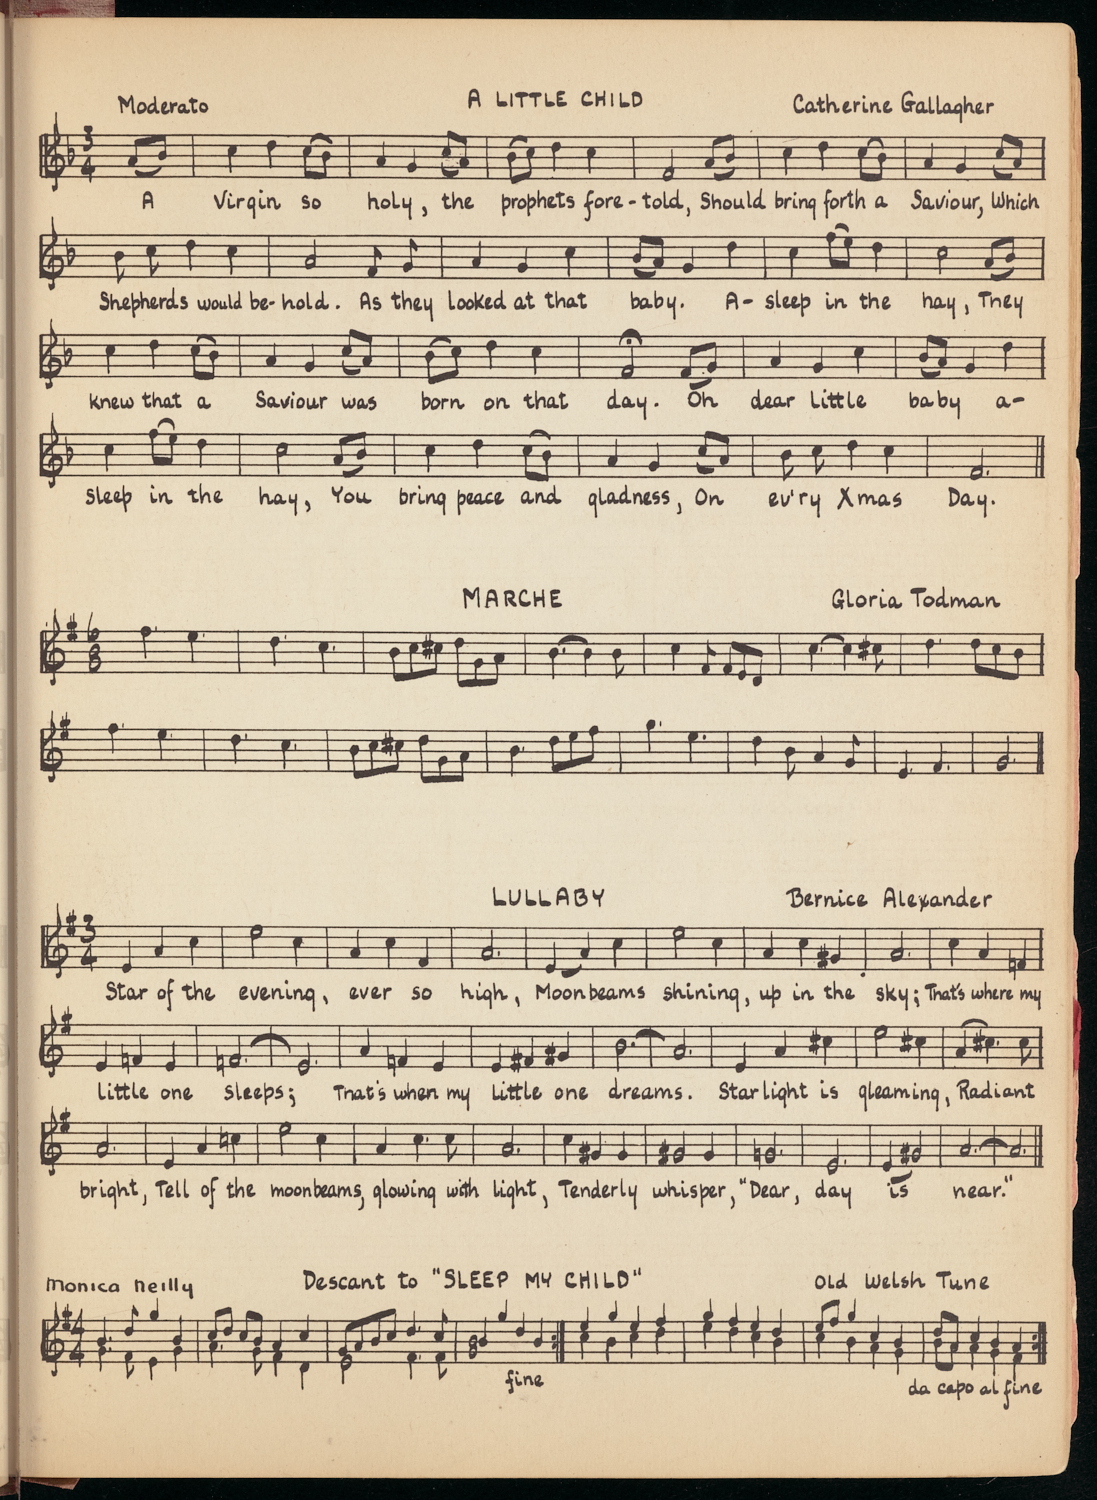 Moderato A LITTLE CHILD Catherine Gallagher
3 4
A Virgin so holy, the prophets fore-told, Should bring forth a Saviour, Which
Shepherds would be-hold. As they looked at that baby. A- sleep in the hay, They
knew that a Saviour was born on that day. Oh dear little baby a-
sleep in the hay, You bring peace and gladness, On ev'ry Xmas Day.
MARCHE Gloria Todman
6 8
LULLABY Bernice Alexander
3 4
Star of the evening, ever so high, Moonbeams shining, up in the sky; That's where my
little one sleeps; That's when my little one dreams. Starlight is gleaming, Radiant
bright, Tell of the moonbeams, glowing with light, Tenderly whisper, "Dear, day is near."
Monica Neilly Descant to "SLEEP MY CHILD" Old Welsh Tune
4 4
fine da capo al fine